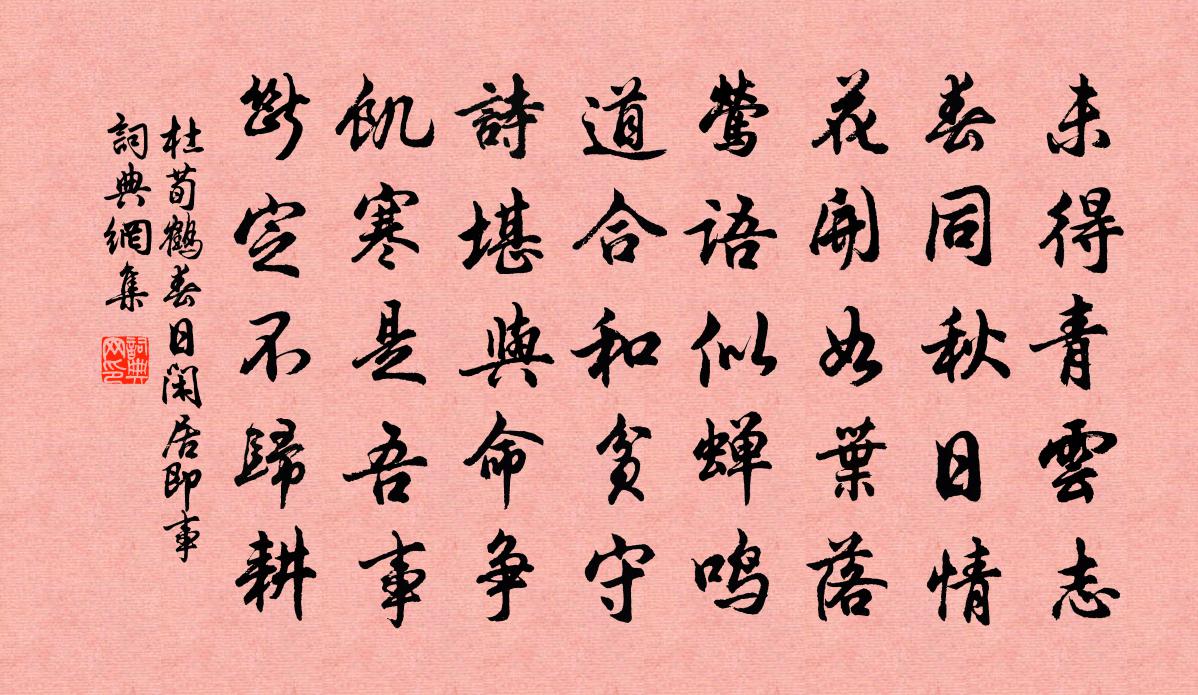 未得青雲志
春同秋日情
花開如葉落
鶯語似蝉鳴
道合和貧守
詩堪與命争
飢寒是吾事
斷定不歸耕
杜荀鶴春日閑居即事
詞典網集
詞典網印